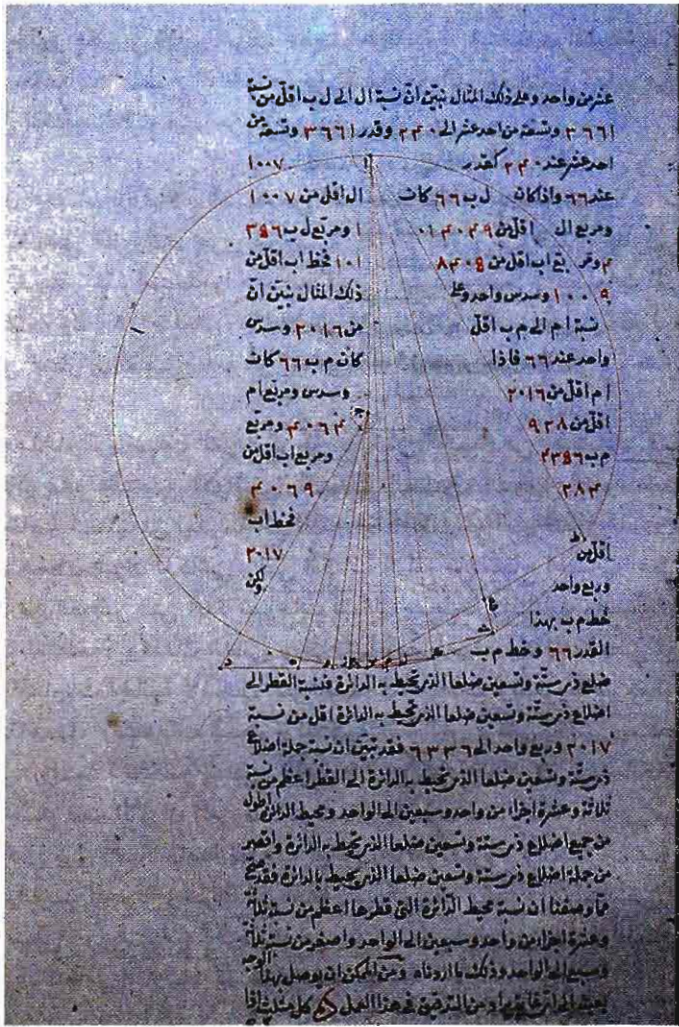 عشر من واحد وعلى ذلك المثال نبيّن انّ نسبة ال الى ل ب اقلّ من نسبة
٣٦٦١ وتسعة من احد عشر الى ٢٤٠ وقدر ٣٦٦١ وتسعة من
احد عشر عند ٢٤٠ كقدر ١٠٠٧
عند ٦٦ واذا كان ل ب ٦٦ كان ال اقل من ١٠٠٧
ومربع ال اقل من ومربّع ل ب ٤٣٥٦
اب اقل من فخط اب اقلّ من
١٠٠٩ وسدس واحد وعلى ذلك المثال نبيّن انّ
نسبة ام الى م ب اقلّ من ٢٠١٦ وسدس
واحد عند ٦٦ فاذا كان م ب ٦٦ كان
ام اقل من ٢٠١٦ وسدس ومربّع ام
اقلّ من ٤٠٦٤٩٢٨ ومربّع
م ب ٤٣٥٦ ومربع اب اقل من
٤٠٦٩٢٨٤
فخط اب
اقل من ٢٠١٧
وربع واحد ولكن
خط م ب بهذا
القدر ٦٦ وخط م ب
ضلع ذى ستّة وتسعين ضلعا الذى تحيط به الدائرة فنسبة القطر الى
اضلاع ذى ستّة وتسعين ضلعا الذى تحيط به الدائرة اقل من نسبة
٢٠١٧ وربع واحد الى ٦٣٣٦ فقد تبيّن ان نسبة جملة اضلاع
ذى ستّة وتسعين ضلعا الذى تحيط به الدائرة الى القطر اعظم من نسبة
ثلاثة وعشرة اجزاء من واحد وسبعين الى الواحد ومحيط الدائرة اطول
من جميع اضلاع ذى ستّة وتسعين ضلعا الذى تحيط به الدائرة واقصر
من جملة اضلاع ذى ستة وتسعين ضلعا الذى يحيط بالدائرة فقد صحّ
ممّا وصفنا ان نسبة محيط الدّائرة الى قطرها اعظم من نسبة ثلاثة
وعشرة اجزاء من واحد وسبعين الى الواحد واصغر من نسبة ثلاثة
وسبع الى الواحد وذلك ما اردناه ومن الممكن ان يوصل بهذا الوجه
من التدقيق فى هذا العمل كل مثلث